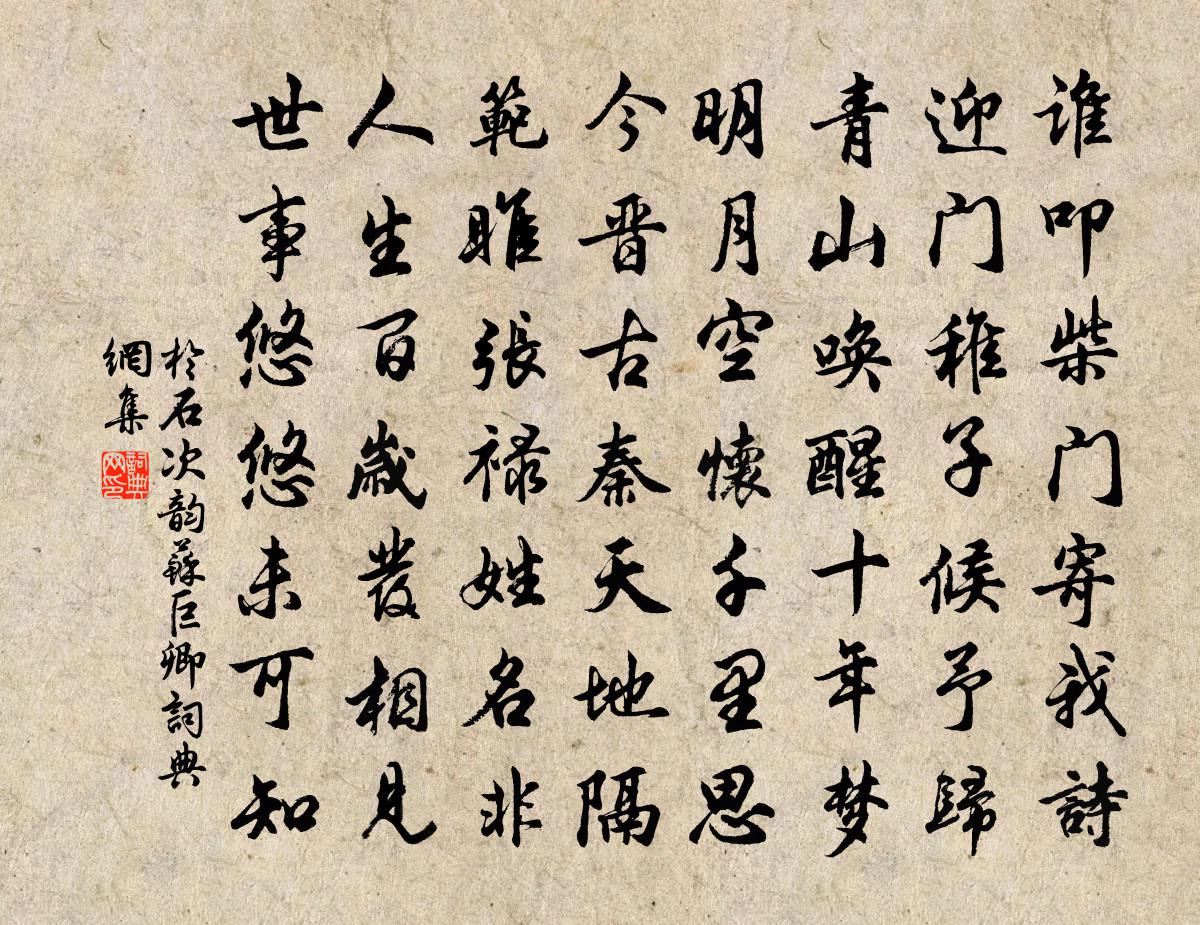 谁叩柴门寄我詩
迎门稚子候予歸
青山唤醒十年梦
明月空懷千里思
今晋古秦天地隔
範雎張禄姓名非
人生百歲發相見
世事悠悠未可知
於石次韵蘇巨卿詞典
網集
詞典網印